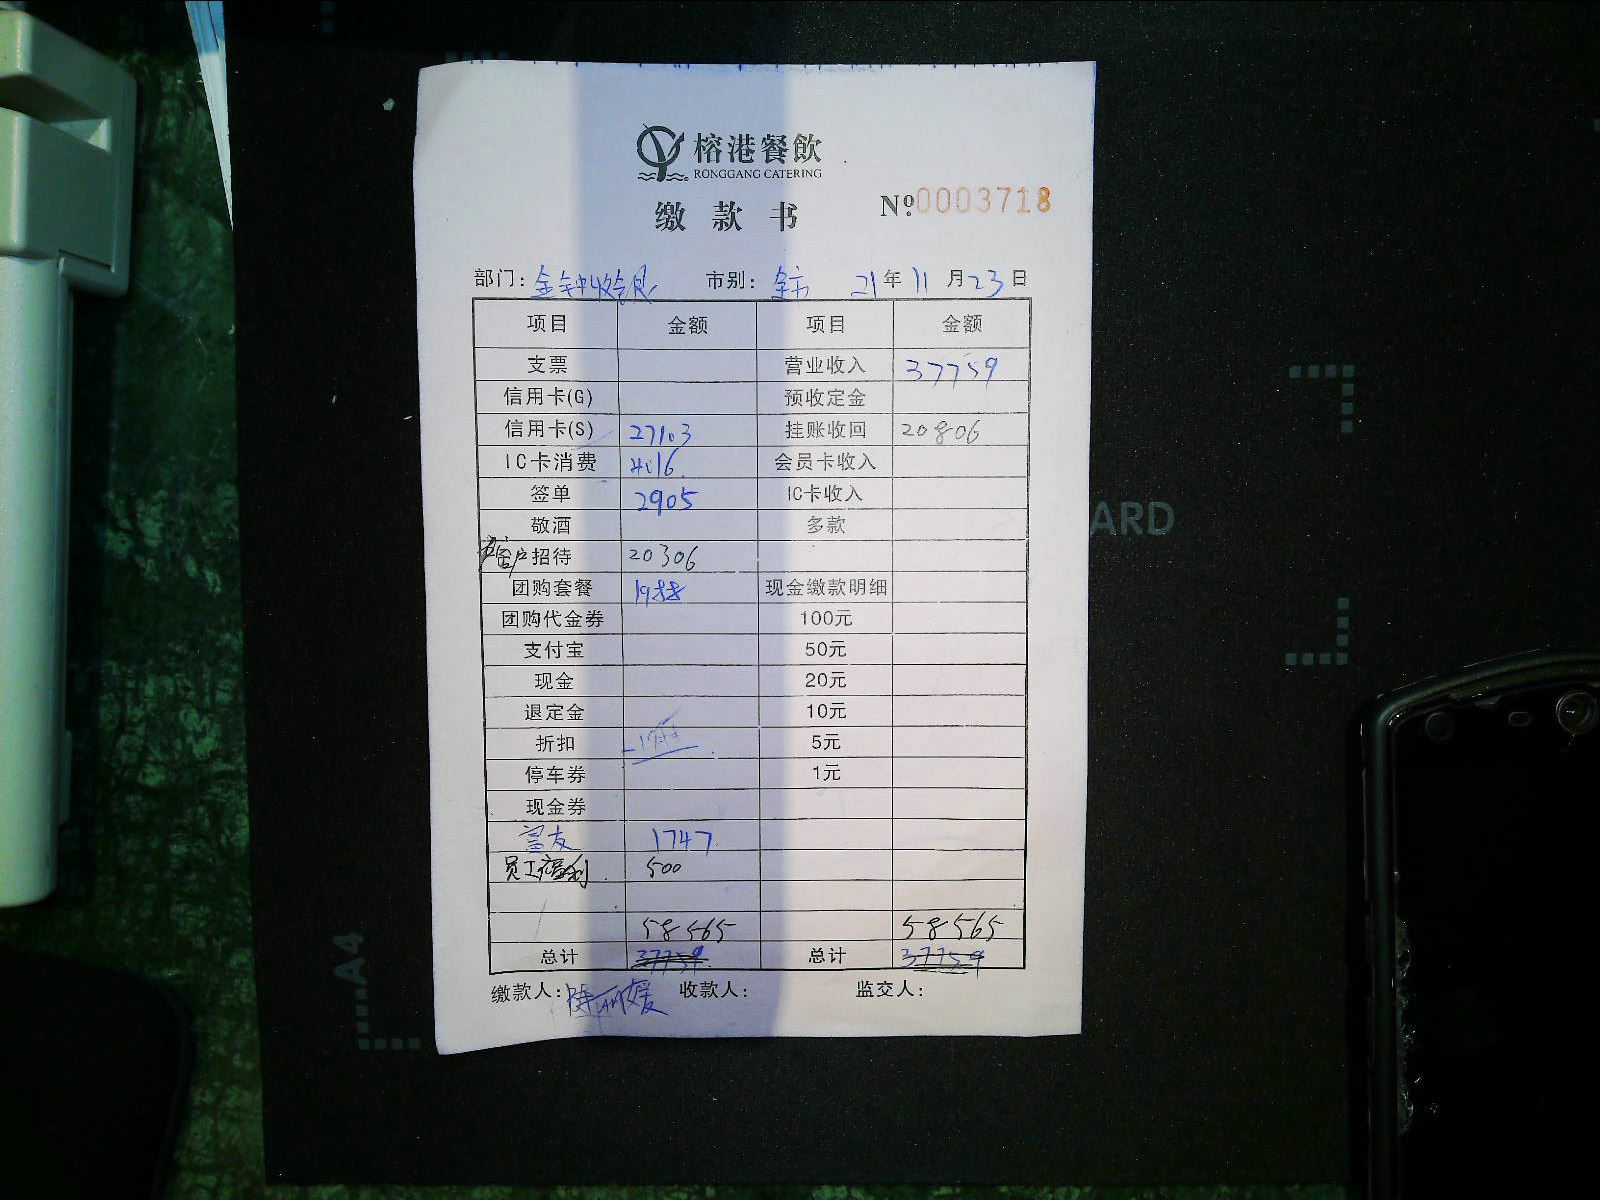 榕港餐飲
RONGGANG CATERING
缴款书 №:0003718
部门:金钟收银 市别:全市 21年11月23日
项目 金额 项目 金额
支票 营业收入 37759
信用卡(G) 预收定金
信用卡(S) 27103 挂账收回 20806
IC卡消费 4016 会员卡收入
签单 2905 IC卡收入
敬酒 多款
客户招待 20306
团购套餐 1988 现金缴款明细
团购代金券 100元
支付宝 50元
现金 20元
退定金 10元
折扣 5元
停车券 1元
现金券
富友 1747
员工福利 500
58565 58565
总计 37759 总计 37759
缴款人: 收款人: 监交人:
ARD
A4